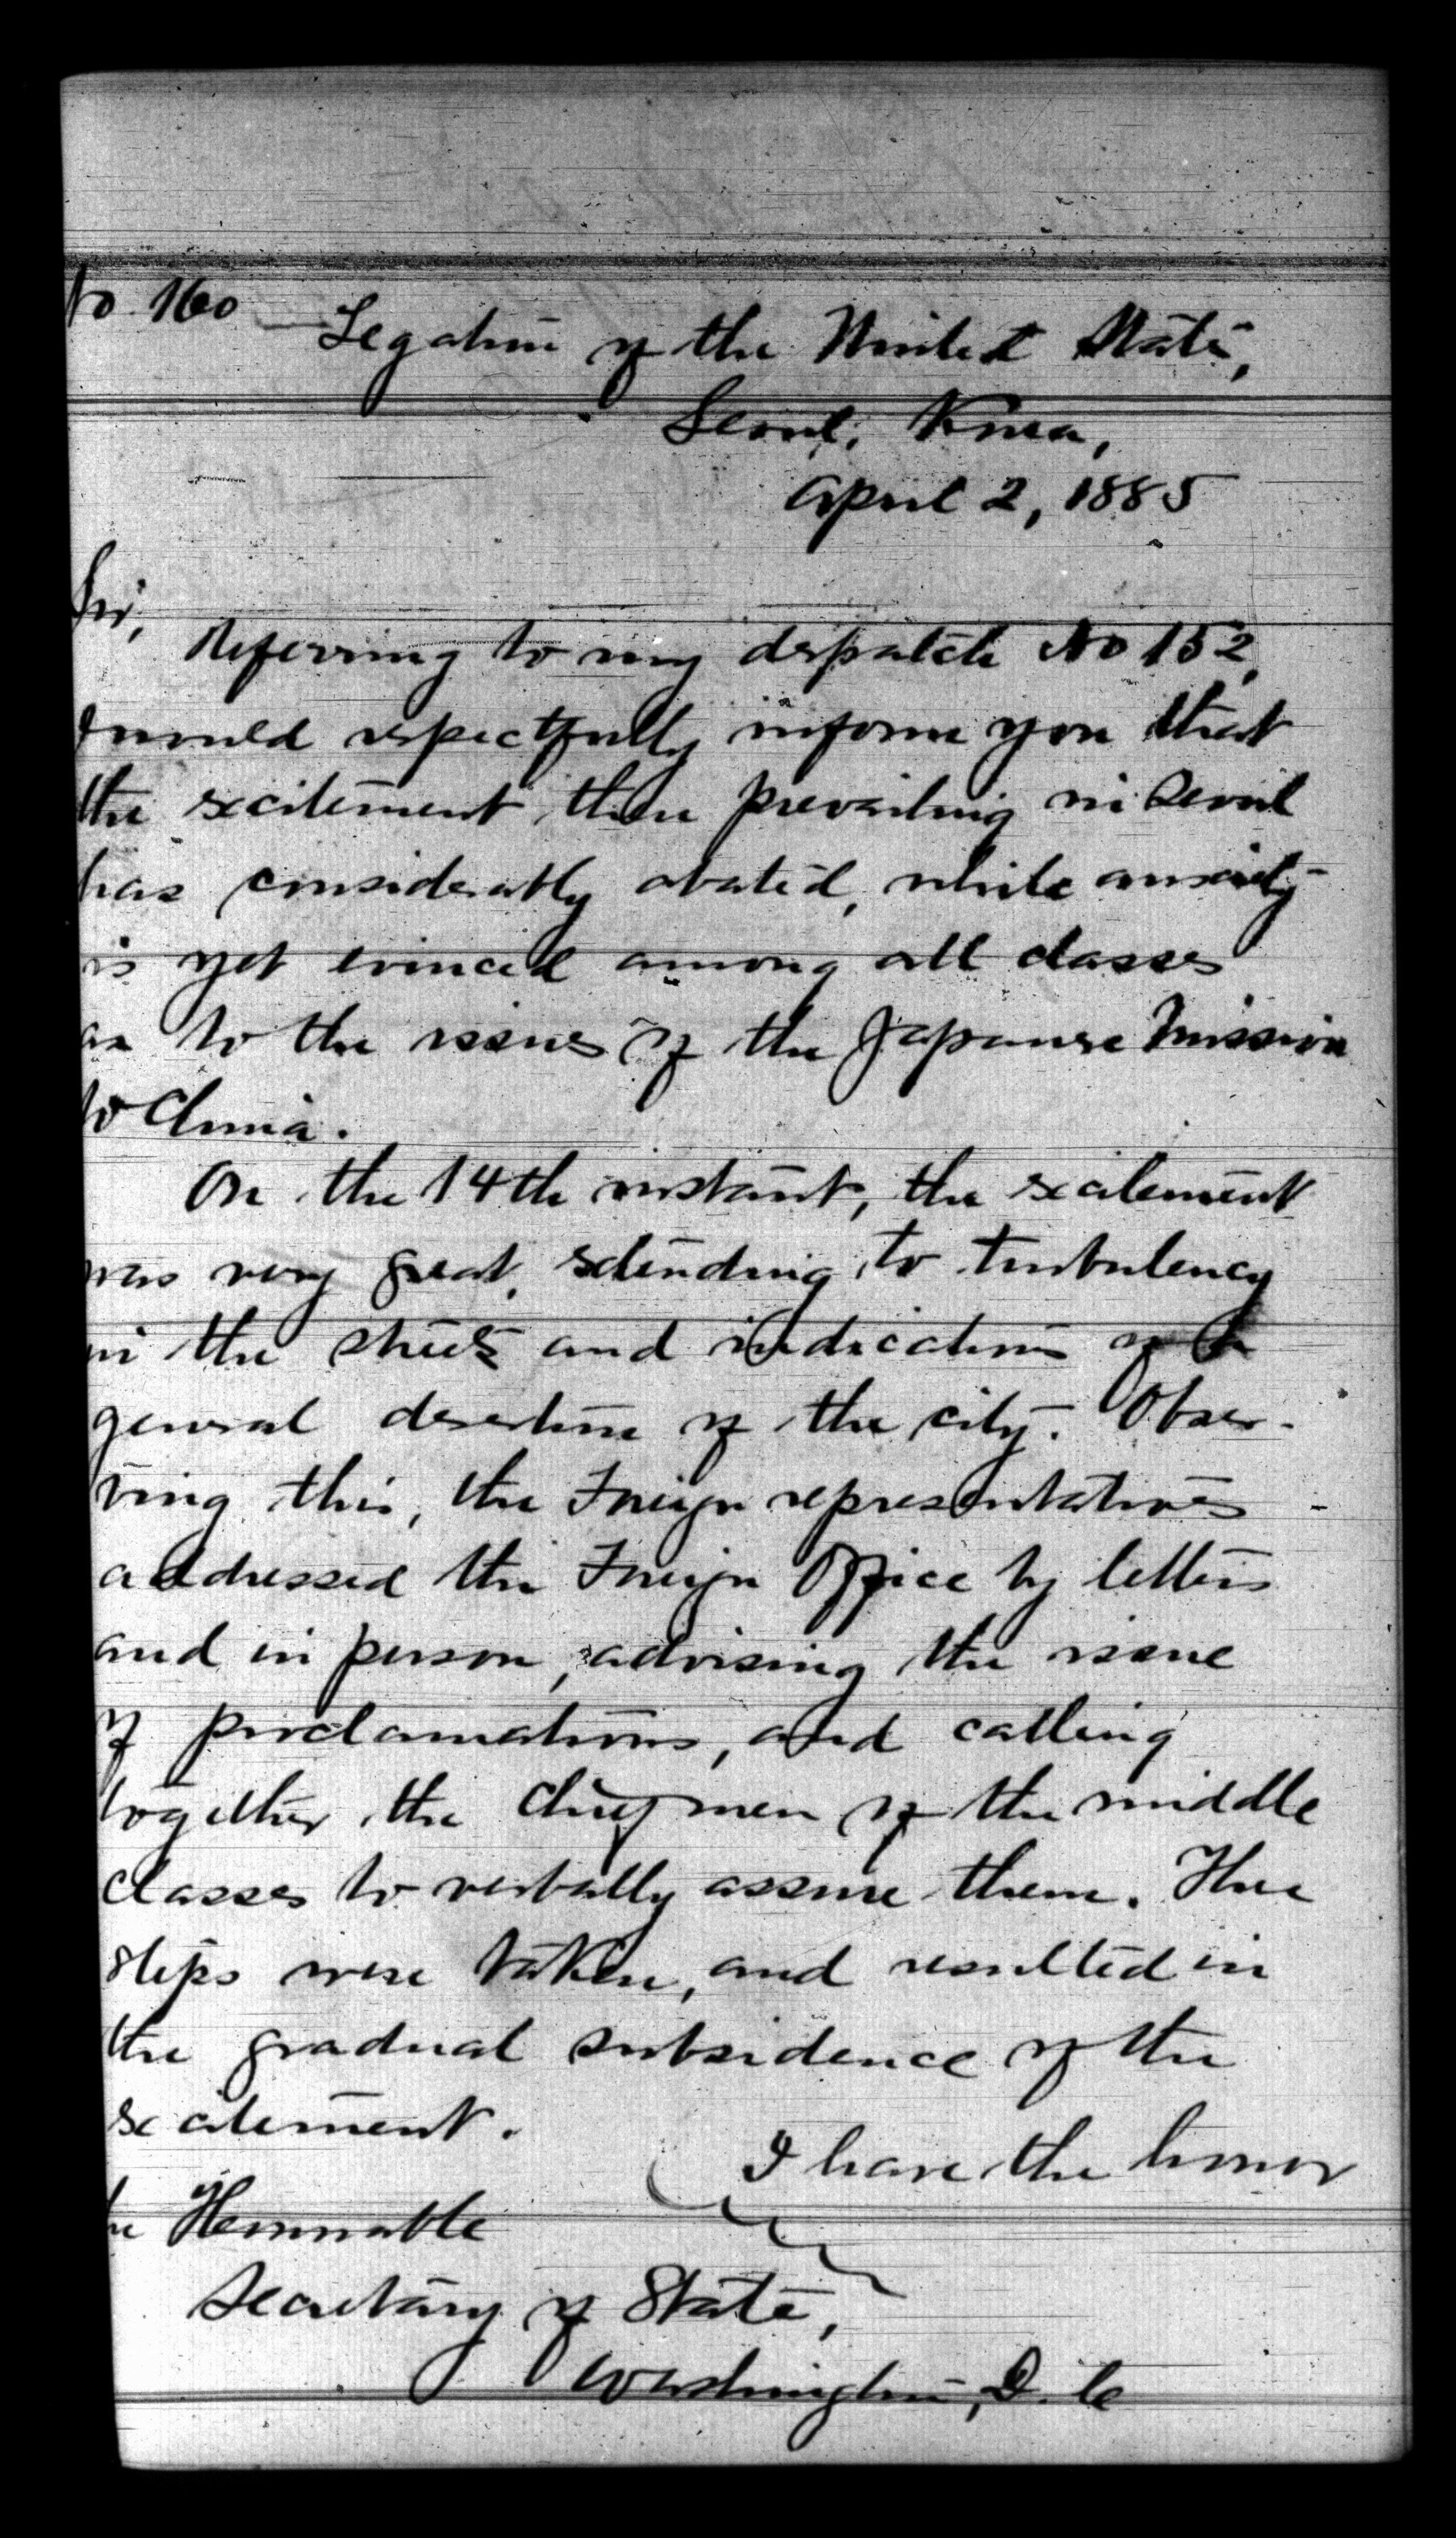 No 160
Legation of the United States,
Seoul, Korea,
April 2, 1885
Sir,
Referring to my despatch No 152,
I would respectfully inform you that
the excitement then prevailing in Seoul
has considerably abated, while anxiety
is yet evinced among all classes
as to the issues of the Japanese Mission
to China.
On the 14th instant, the excitement
was very great, extending to turbulency
in the streets and indications of a
general desertion of the city. Obser-
ving this, the Foreign representatives
addressed the Foreign Office by letters
and in person, advising the issue
of proclamations, and calling
together the chief men of the middle
classes to verbally assure them. These
steps were taken, and resulted in
the gradual subsidence of the
excitement.
I have the honor
The Honorable
Secretary of State,
Washington, D.C